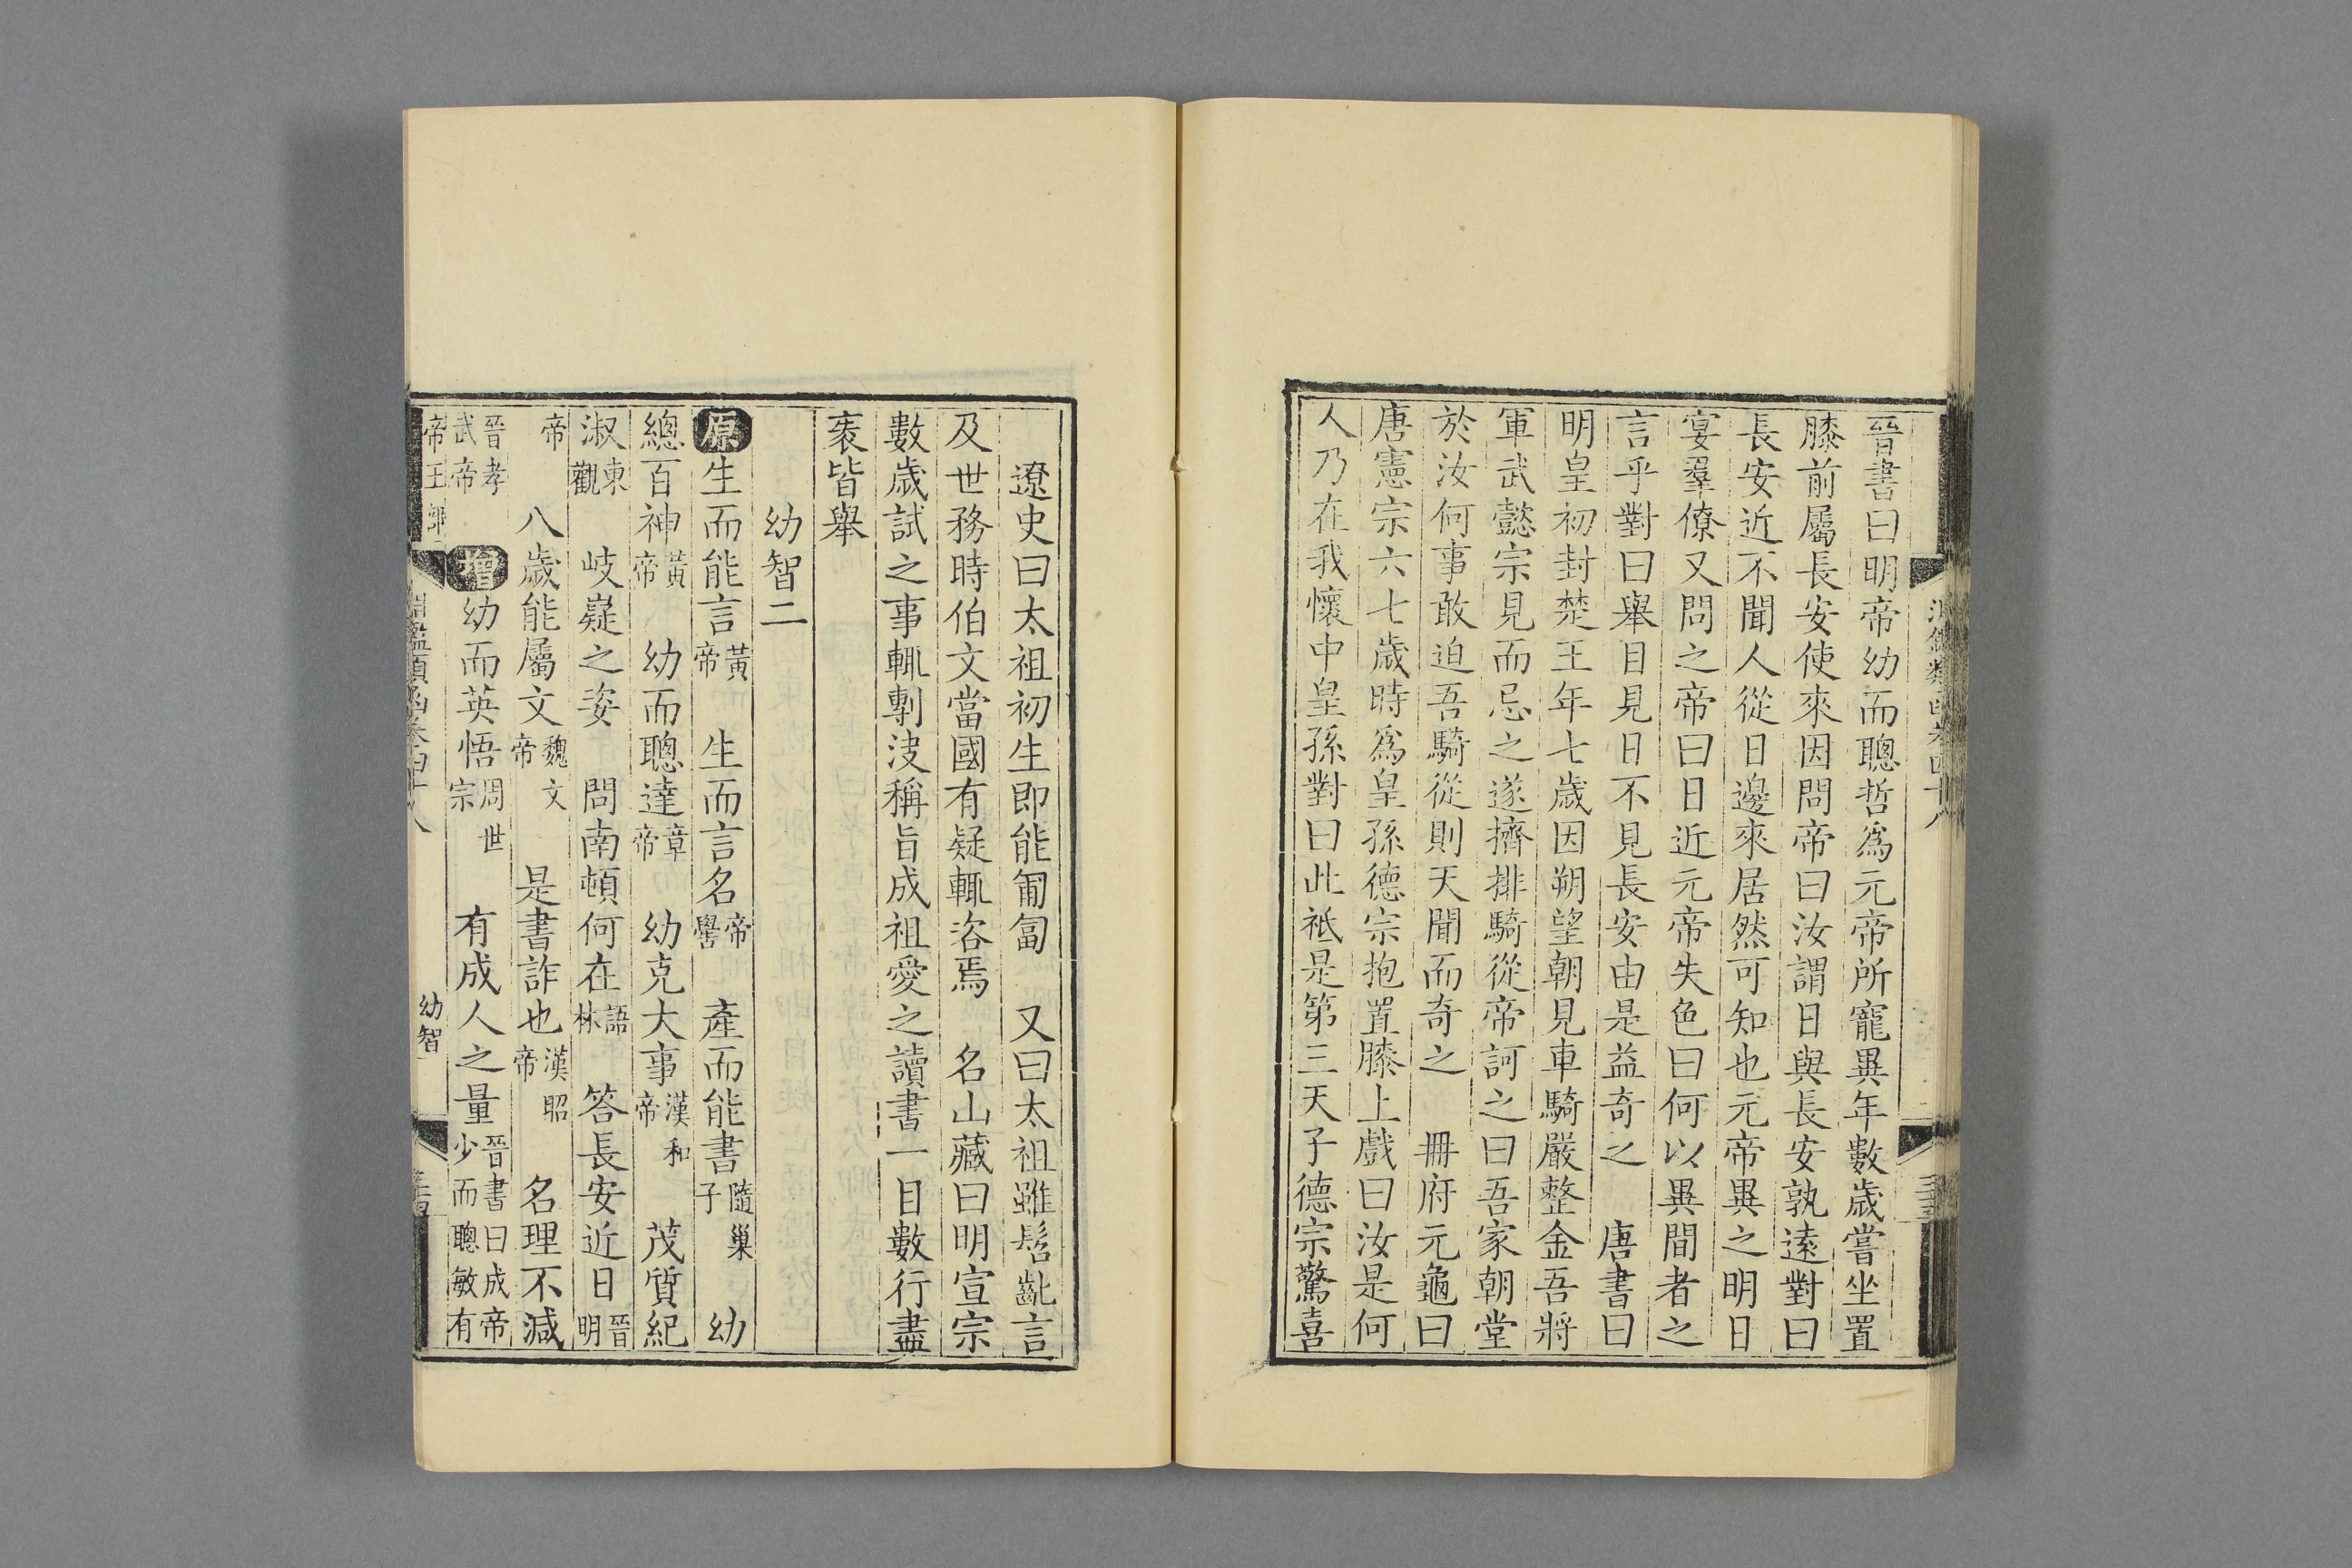 晉書曰明帝幼而聰哲爲元帝所寵異年數歲嘗坐置
膝前屬長安使來因問帝曰汝謂日與長安孰遠對曰
長安近不聞人從日邊來居然可知也元帝異之明日
宴羣僚又問之帝曰日近元帝失色曰何以異間者之
言乎對曰舉目見日不見長安由是益奇之 唐書曰
明皇初封楚王年七歲因朔望朝見車騎嚴整金吾將
軍武懿宗見而忌之遂擠排騎從帝訶之曰吾家朝堂
於汝何事敢迫吾騎從則天聞而奇之 冊府元龜曰
唐憲宗六七歲時爲皇孫德宗抱置膝上戲曰汝是何
人乃在我懷中皇孫對曰此祗是第三天子德宗驚喜
遼史曰太祖初生即能匍匐 又曰太祖雖髫齔言
及世務時伯文當國有疑輒咨焉 名山藏曰明宣宗
數歲試之事輒剸決稱旨成祖愛之讀書一目數行盡
袠皆舉
幼智二
原生而能言黃帝 生而言名帝嚳 產而能書隨巢子 幼
總百神黃帝 幼而聰達章帝 幼克大事漢和帝 茂質純
淑東觀 岐嶷之姿 問南頓何在語林 答長安近日晉明
帝 八歲能屬文魏文帝 是書詐也漢昭帝 名理不減
晉孝武帝 增幼而英悟周世宗 有成人之量晉書曰成帝少而聰敏有
淵鑑類函卷四十八
帝王部
幼智